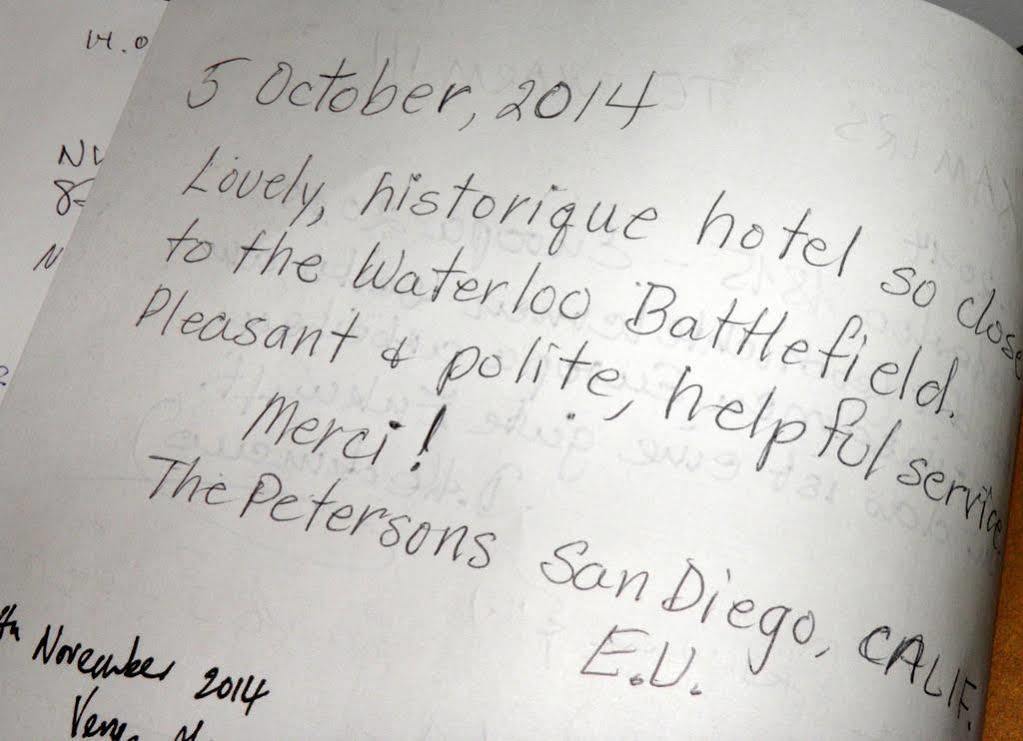 14.0
5 October, 2014
Lovely, historique hotel so close
to the Waterloo Battlefield.
Pleasant & polite, helpful service.
Merci!
The Petersons San Diego, CALIF.
E.U.
November 2014
Very